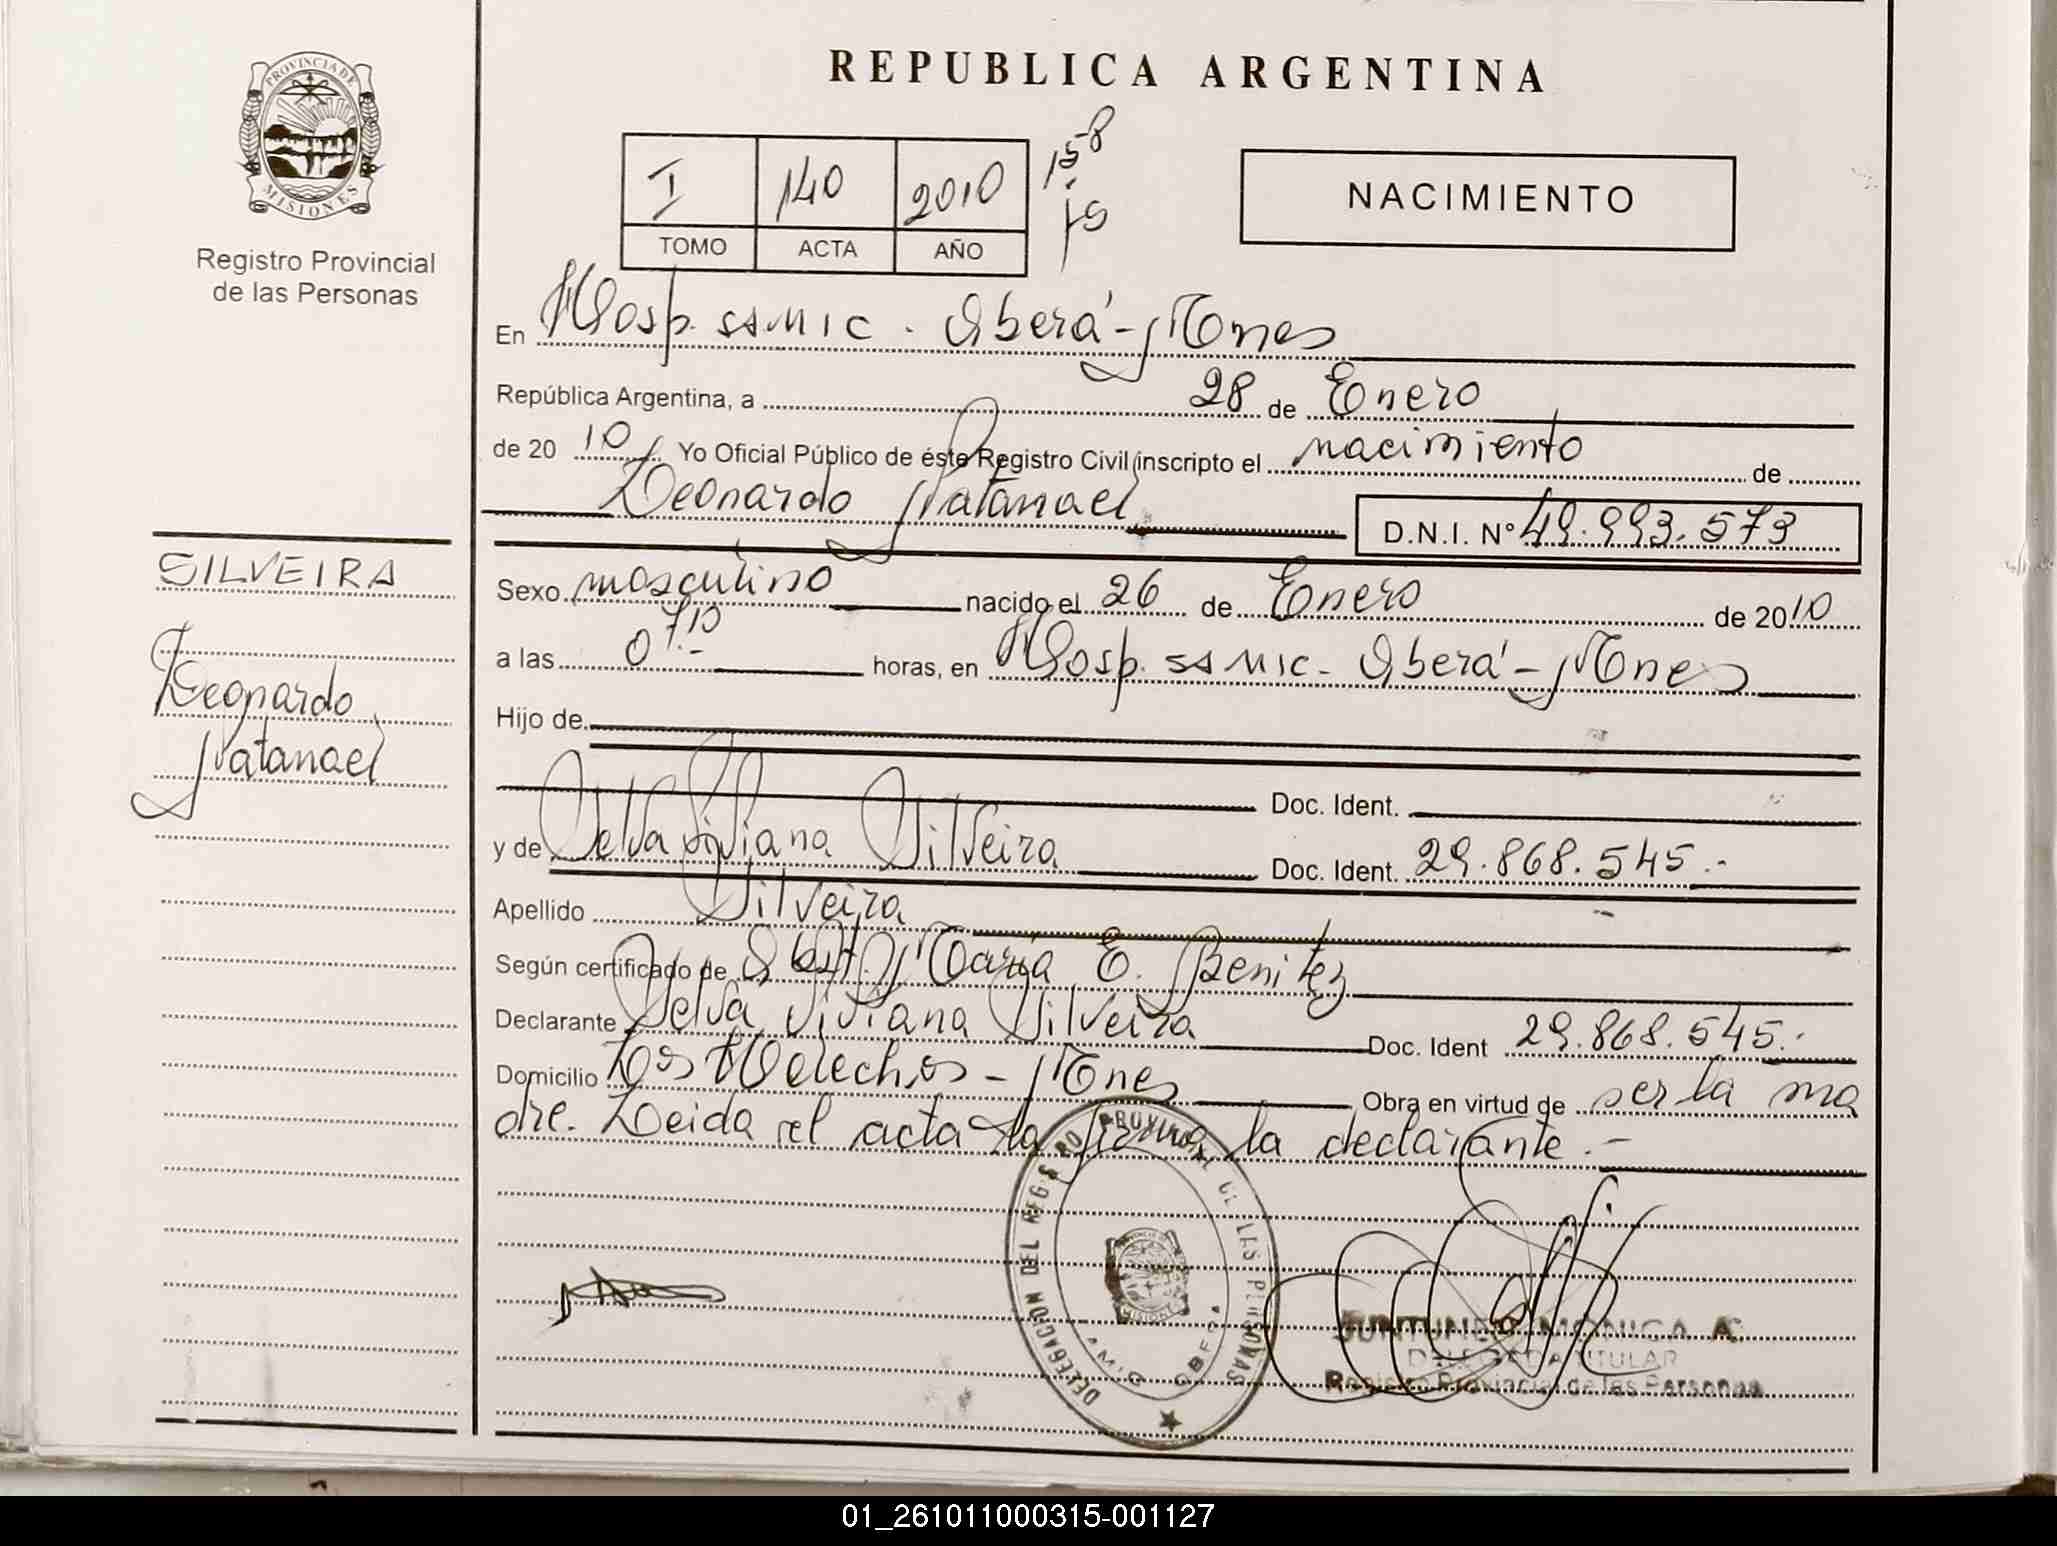 PROVINCIA DE
MISIONES
Registro Provincial
de las Personas
REPUBLICA ARGENTINA
I 140 2010
TOMO ACTA AÑO
158
NACIMIENTO
En Hosp. SAMIC - Oberá - Mnes
República Argentina, a 28 de Enero
de 20 10 Yo Oficial Público de éste Registro Civil inscripto el nacimiento de
Leonardo Natanael D.N.I. N° 49.993.573
SILVEIRA
Leonardo
Natanael
Sexo masculino nacido el 26 de Enero de 2010
a las 0710.- horas, en Hosp. SAMIC - Oberá - Mnes
Hijo de
Doc. Ident.
y de Selva Viviana Silveira Doc. Ident. 29.868.545.-
Apellido Silveira
Según certificado de Obst. María E. Benitez
Declarante Selva Viviana Silveira Doc. Ident 29.868.545.-
Domicilio Los Helechos - Mnes Obra en virtud de ser la ma
dre. Leida el acta la firma la declarante.-
DELEGACION DEL REGISTRO PROVINCIAL DE LAS PERSONAS
MISIONES
OBERA
MONICA A.
DELEGADA TITULAR
Registro Provincial de las Personas
01_261011000315-001127